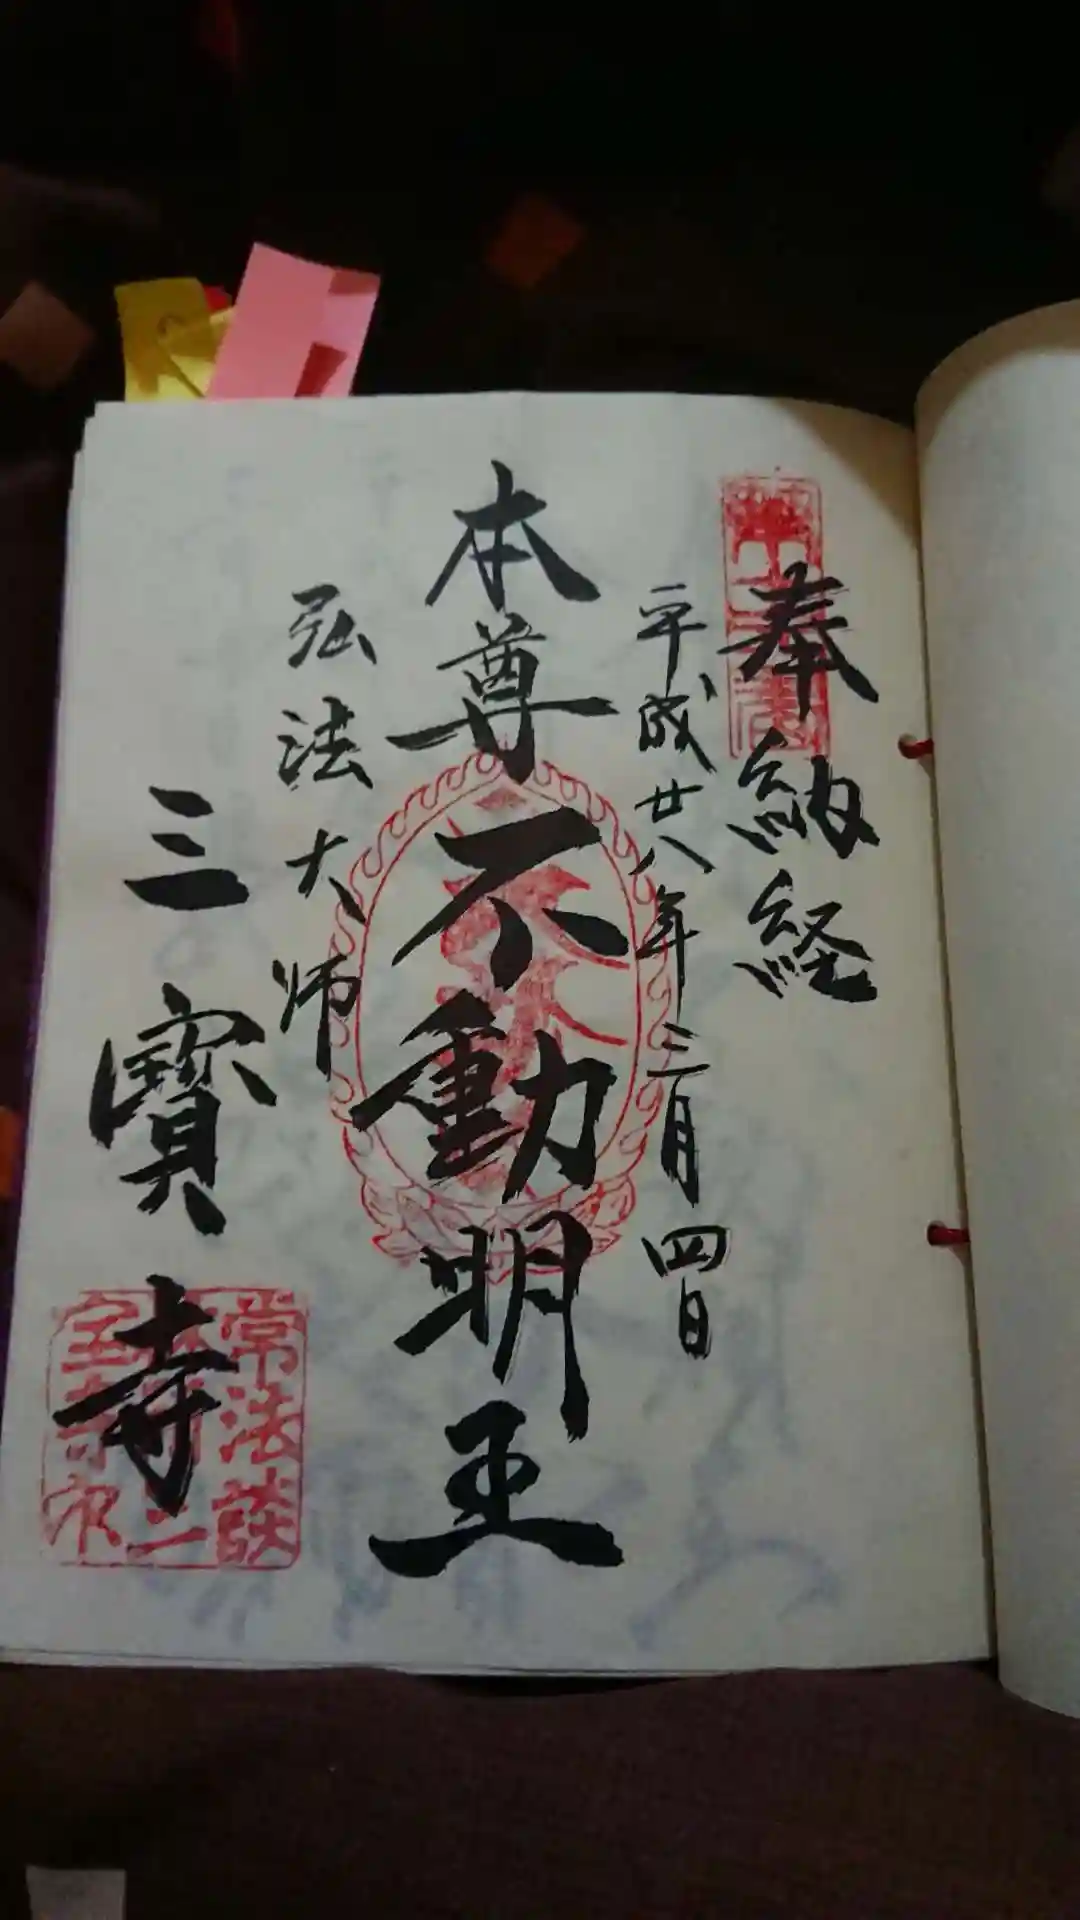 奉納経
平成廿八年三月四日
本尊不動明王
弘法大师
三寳寺
常法談